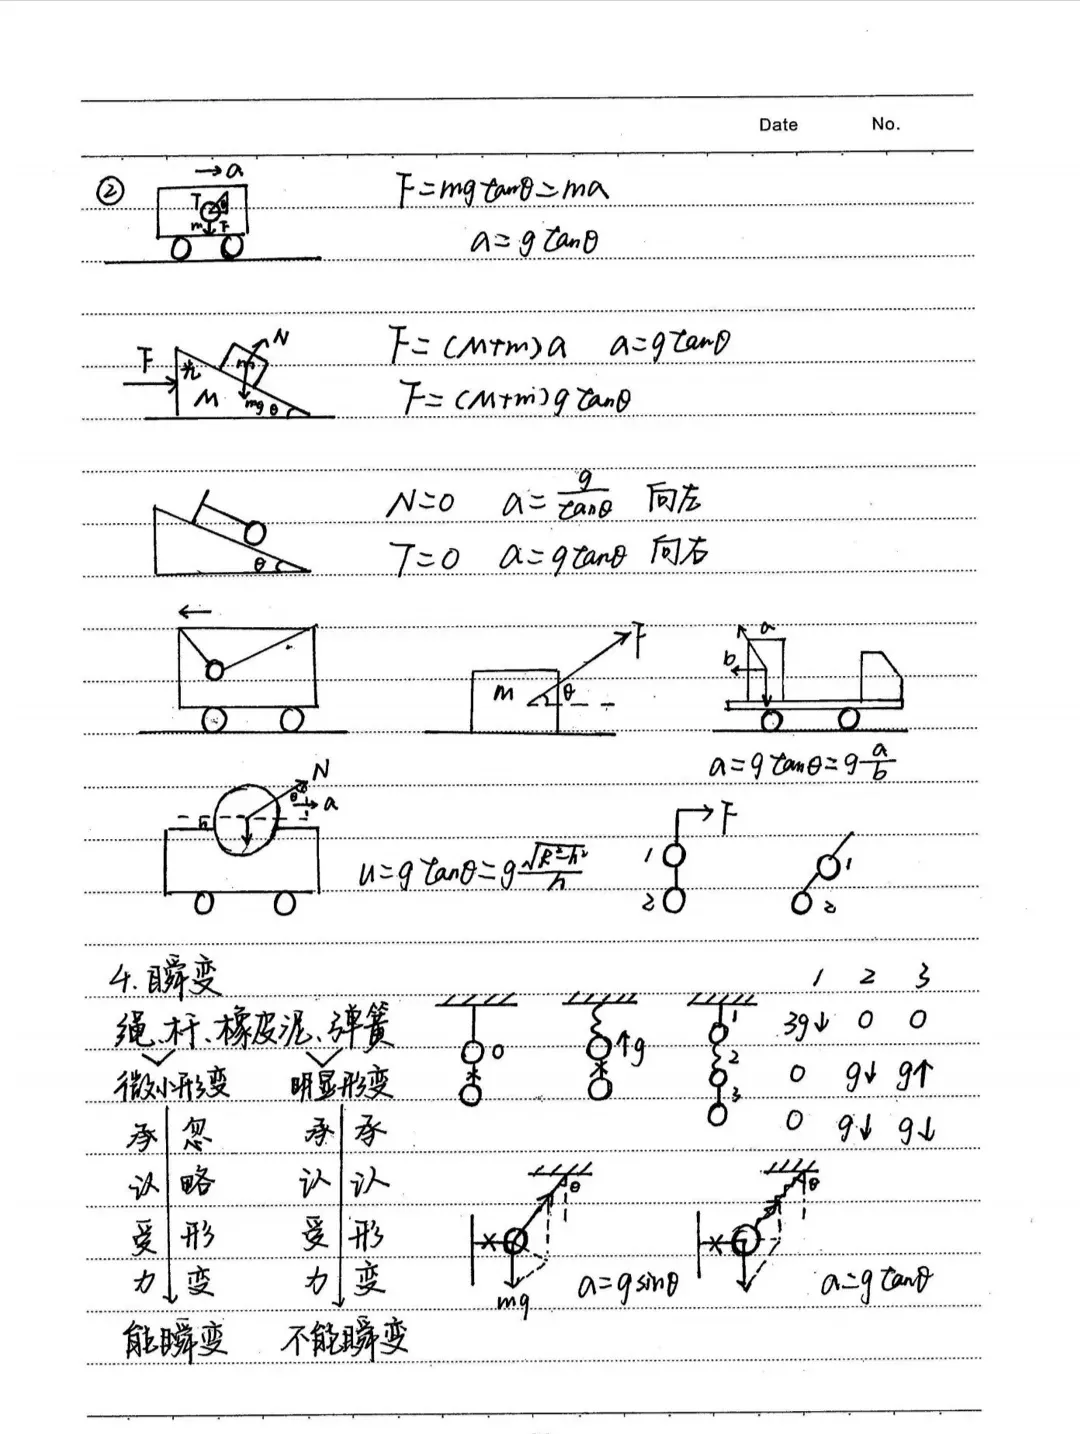 Date No.
② → a
T θ
m F
F=mgtanθ=ma
a=gtanθ
F 光 M m N mg θ
F=(M+m)a a=gtanθ
F=(M+m)gtanθ
θ
N=0 a=g/tanθ 向左
T=0 a=gtanθ 向右
m θ F
a b
a=gtanθ=g a/b
h N θ a
a=gtanθ=g √R²-h²/h
F 1 2
1 2
4.瞬变
绳、杆、橡皮泥、弹簧
微小形变 明显形变
承认受力 忽略形变
承认受力 承认形变
能瞬变 不能瞬变
0 ↑g
1 2 3
1 2 3
3g↓ 0 0
0 g↓ g↑
0 g↓ g↓
θ mg a=gsinθ
θ a=gtanθ